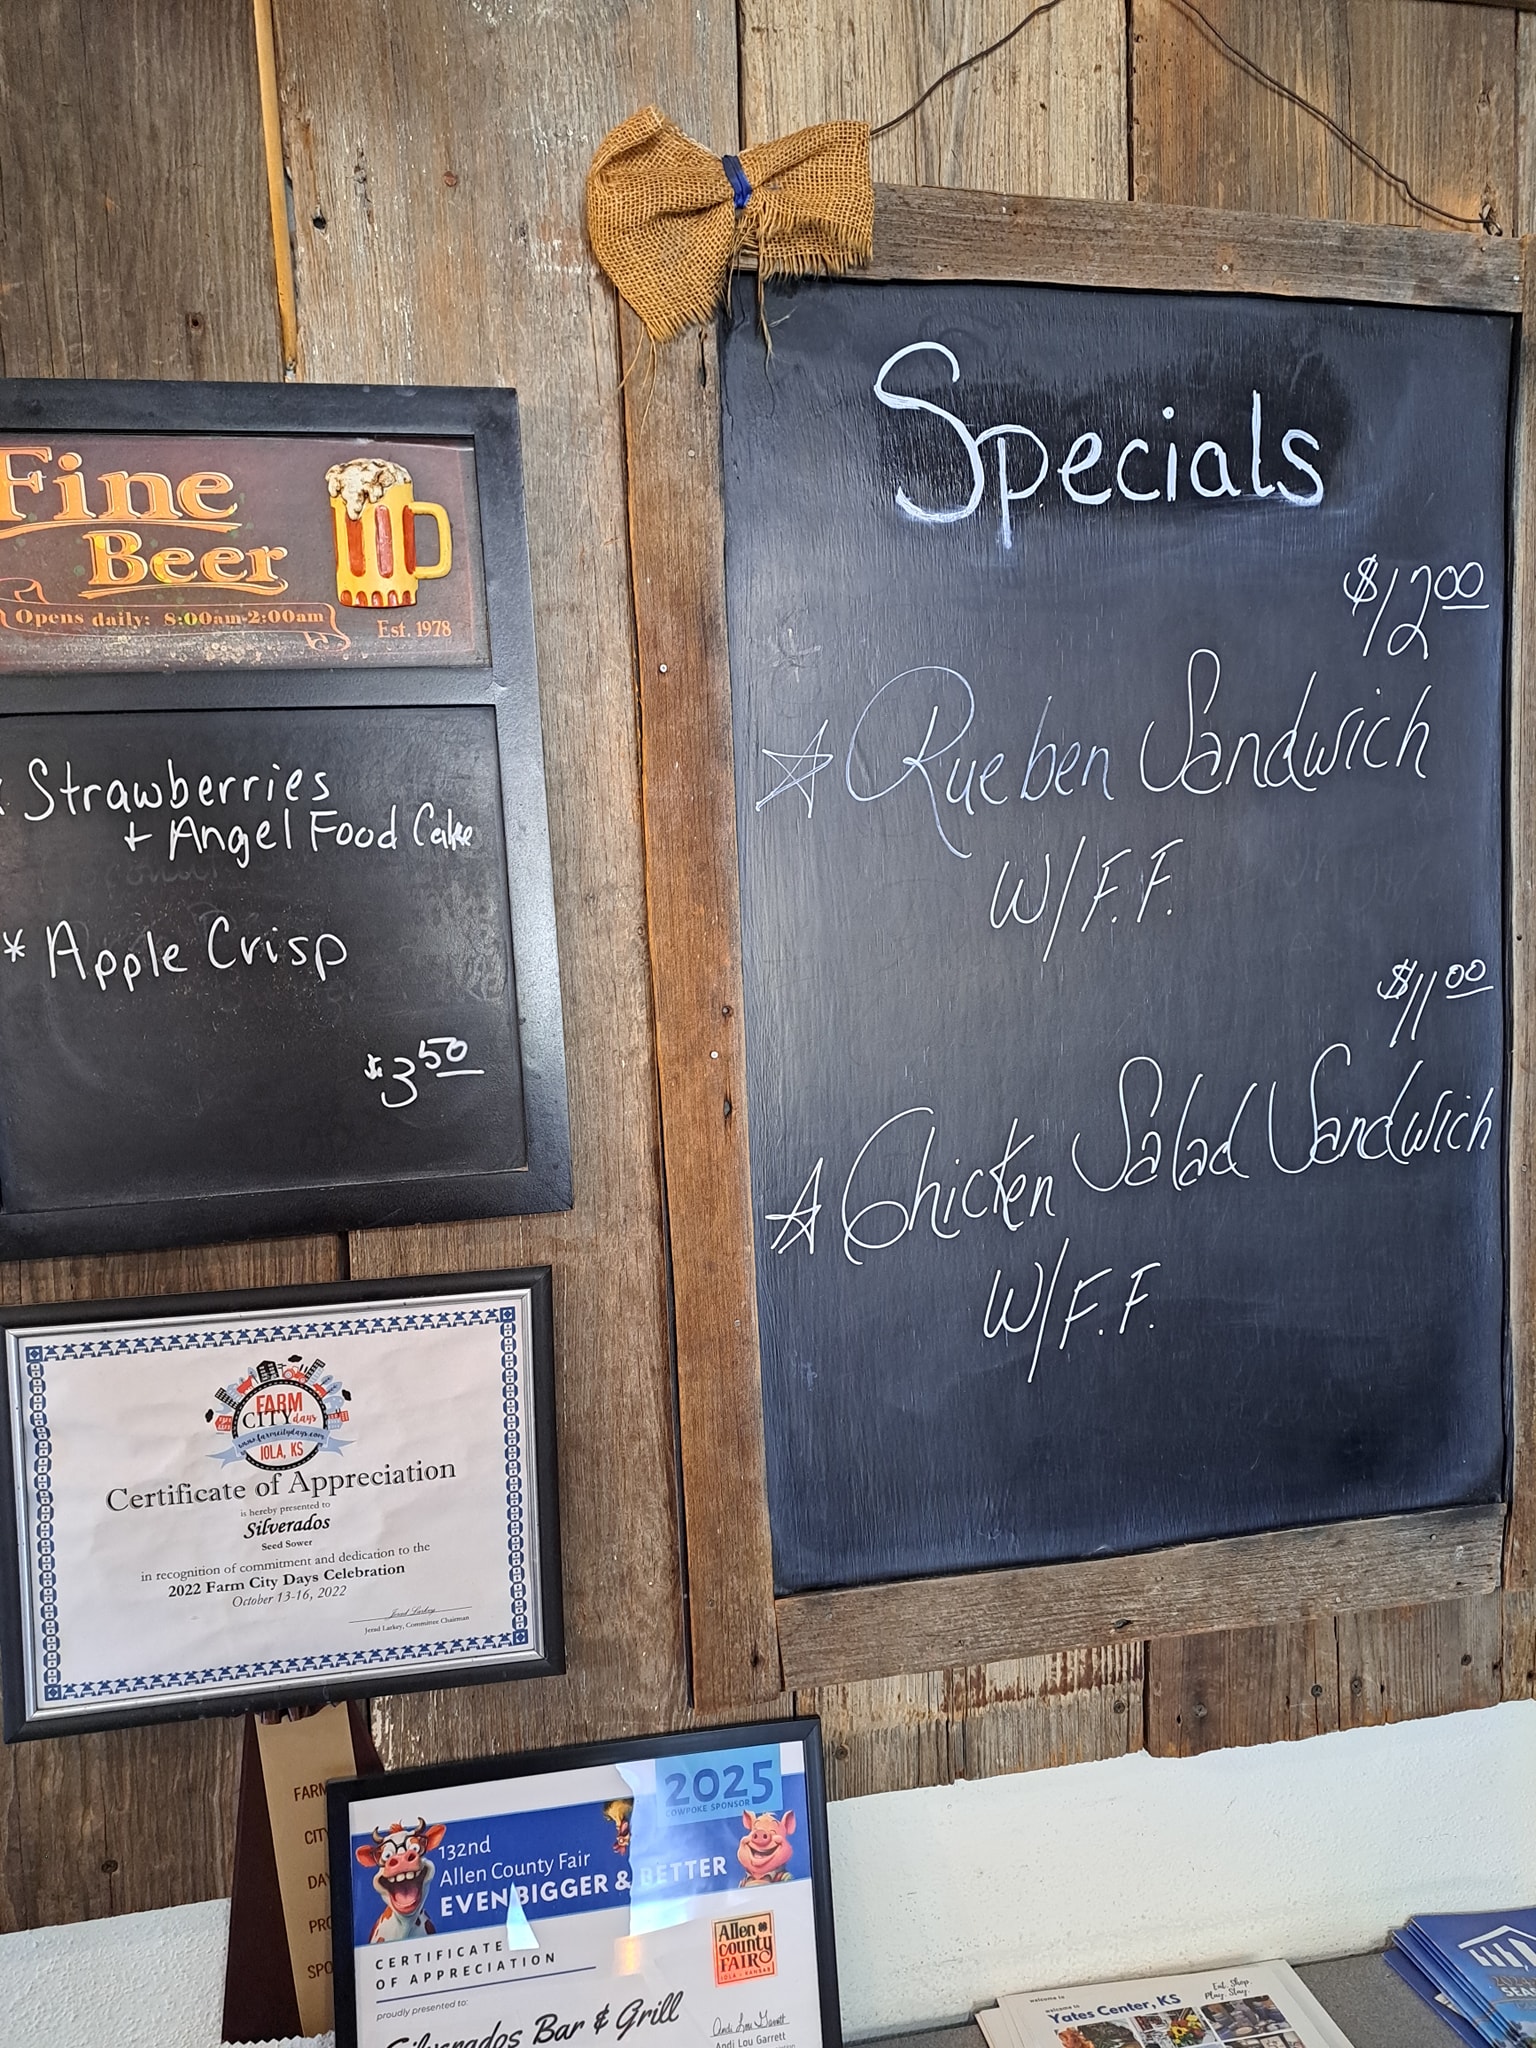 Fine
Beer
Opens daily: 8:00am-2:00am
Est. 1978
Strawberries
+ Angel Food Cake
* Apple Crisp
$3 50
Specials
$12 00
☆ Rueben Sandwich
W/F.F.
$11 00
☆ Chicken Salad Sandwich
W/F.F.
FARM
CITY days
www.farmcitydays.com
IOLA, KS
Certificate of Appreciation
is hereby presented to
Silverados
Seed Sower
in recognition of commitment and dedication to the
2022 Farm City Days Celebration
October 13-16, 2022
Jerad Larkey
Jerad Larkey, Committee Chairman
FARM
CITY
DA
PRO
SPO
2025
COWPOKE SPONSOR
132nd
Allen County Fair
EVEN BIGGER & BETTER
CERTIFICATE
OF APPRECIATION
Allen
county
FAIR
IOLA • KANSAS
proudly presented to:
Silverados Bar & Grill
Andi Lou Garrett
Andi Lou Garrett
welcome to
welcome to
Yates Center, KS
Eat. Shop.
Play. Stay.
SEA